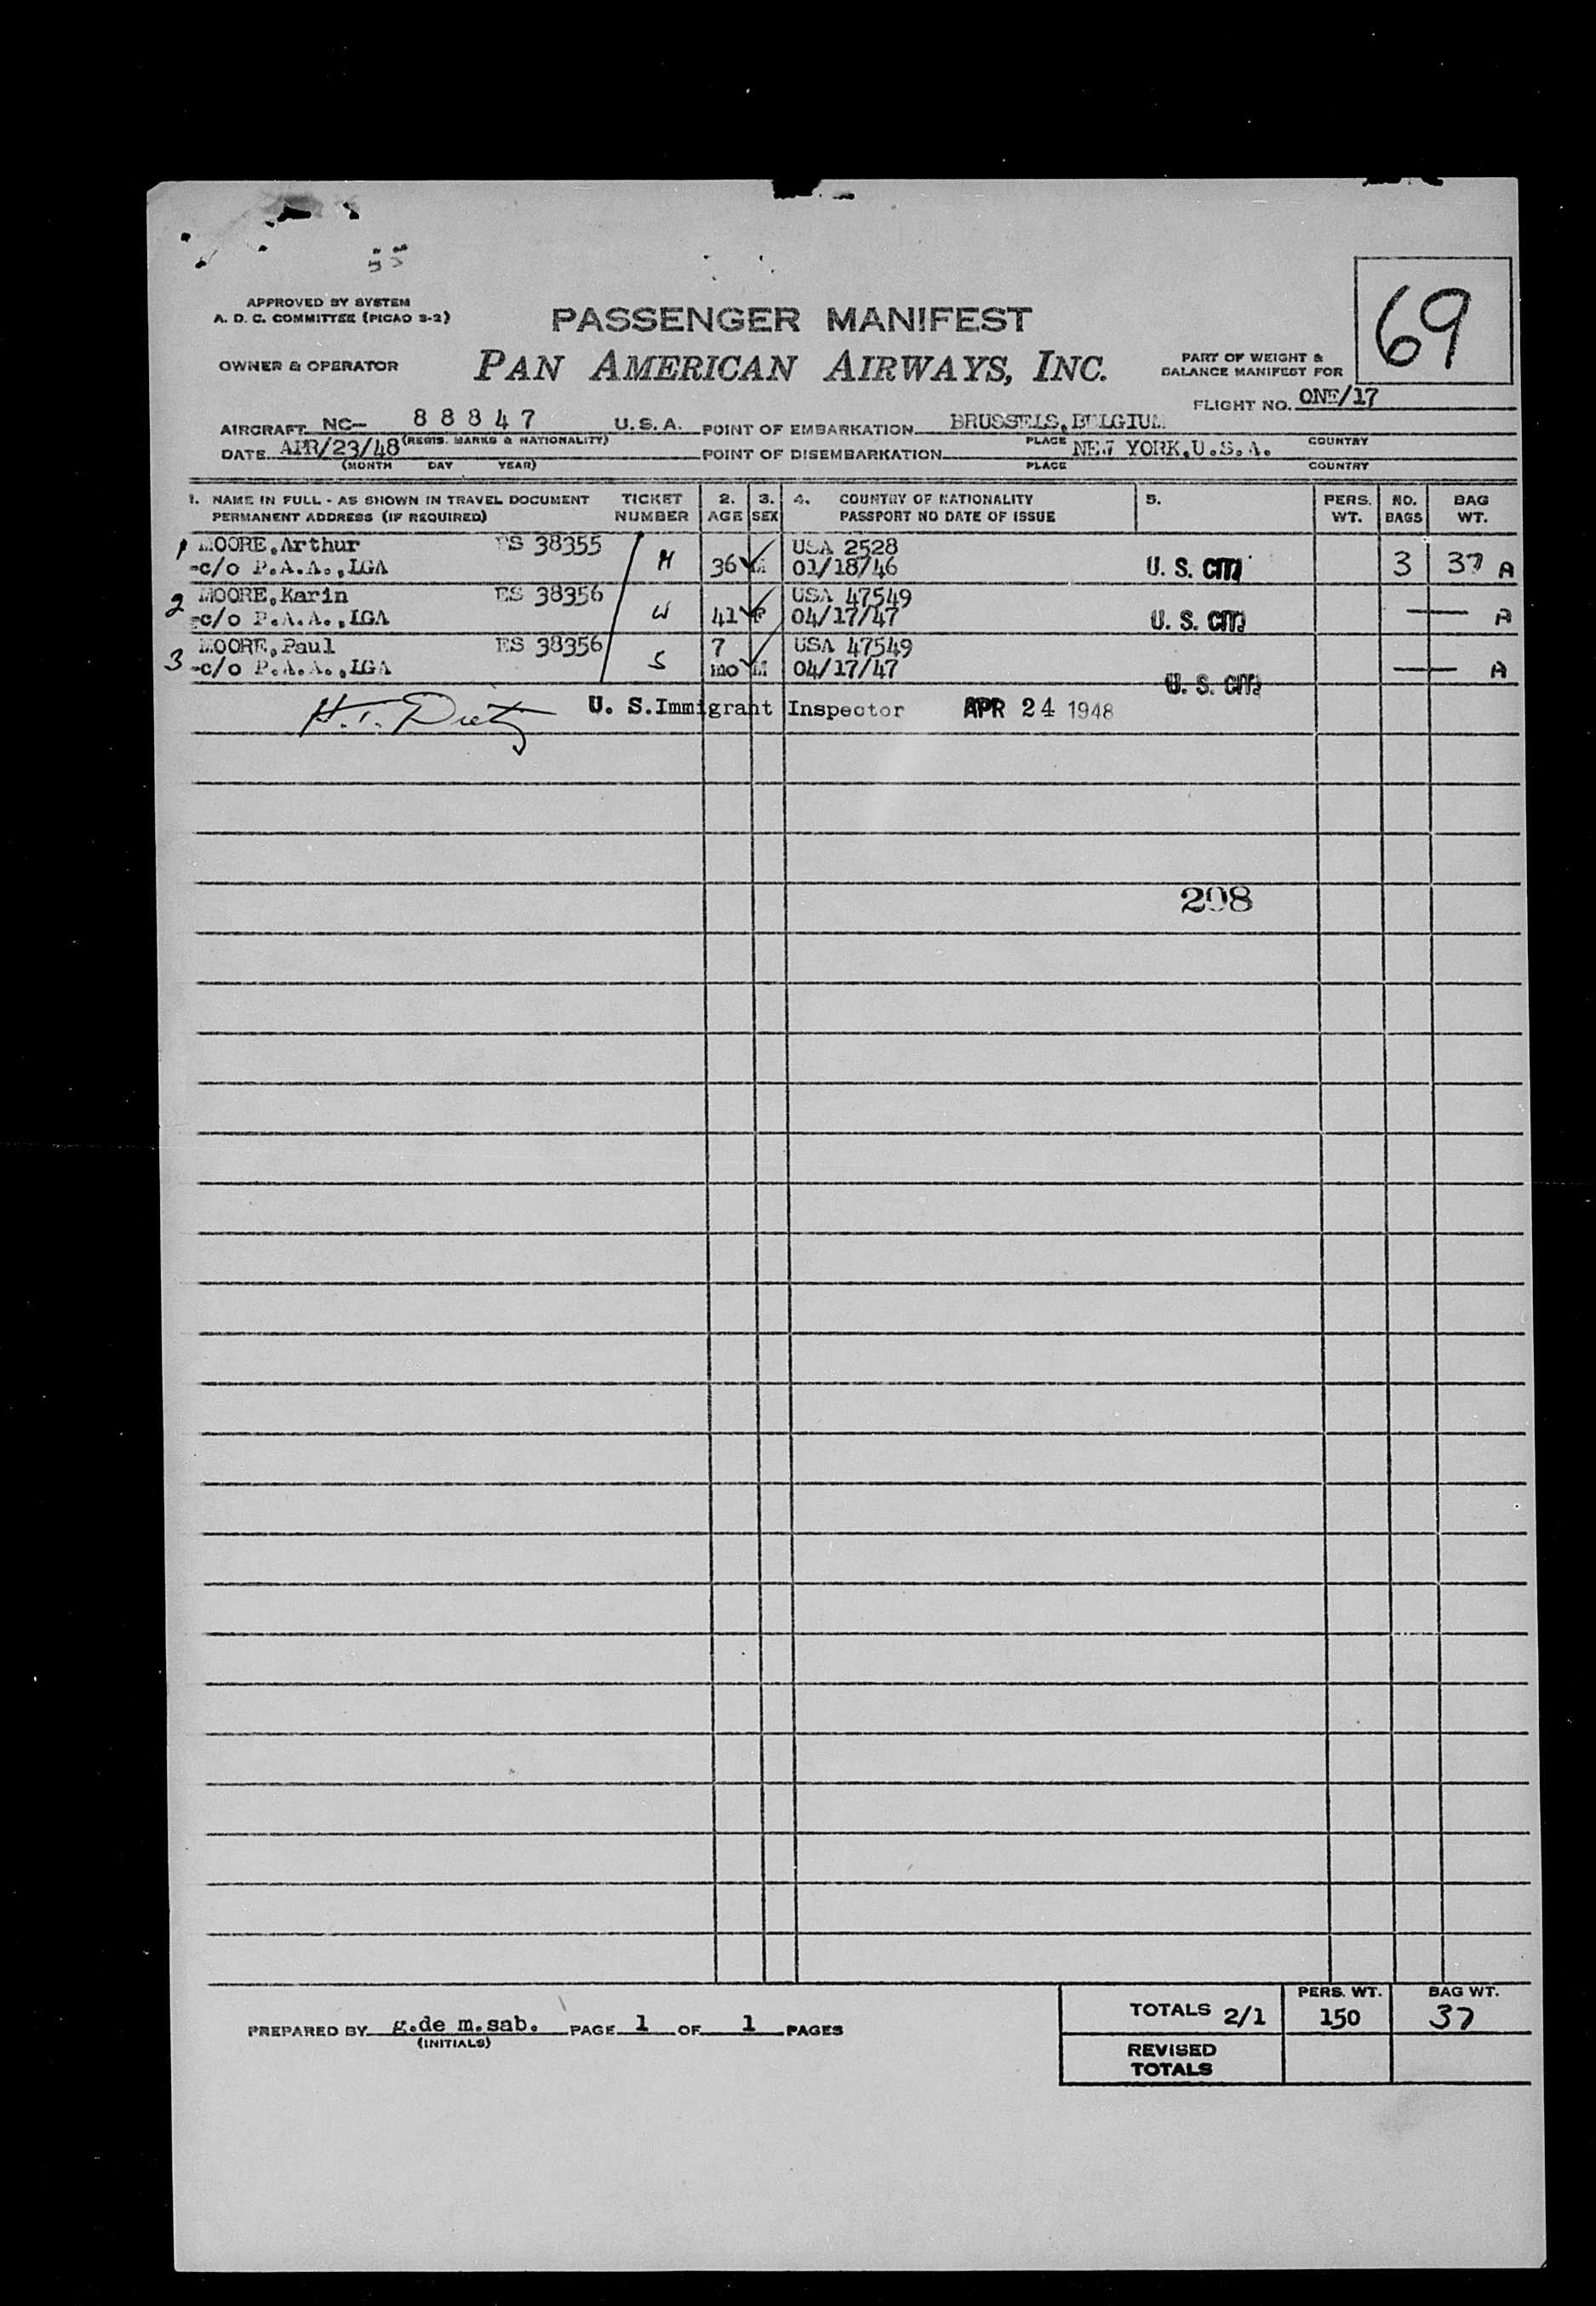 55
APPROVED BY SYSTEM
A. D. C. COMMITTEE (PICAO 3-2)
69
PASSENGER MANIFEST
OWNER & OPERATOR
PAN AMERICAN AIRWAYS, INC.
PART OF WEIGHT &
BALANCE MANIFEST FOR
FLIGHT NO. ONE/17
AIRCRAFT NC- 88847 U.S.A. POINT OF EMBARKATION BRUSSELS, BELGIUM
(REGIS. MARKS & NATIONALITY) PLACE COUNTRY
DATE APR/23/48 POINT OF DISEMBARKATION NEW YORK,U.S.A.
(MONTH DAY YEAR) PLACE COUNTRY
1. NAME IN FULL - AS SHOWN IN TRAVEL DOCUMENT TICKET 2. 3. 4. COUNTRY OF NATIONALITY 5. PERS. NO. BAG
PERMANENT ADDRESS (IF REQUIRED) NUMBER AGE SEX PASSPORT NO DATE OF ISSUE WT. BAGS WT.
1 MOORE,Arthur ES 38355 USA 2528
-c/o P.A.A.,LGA H 36 M 01/18/46 U. S. CIT. 3 37 A
2 MOORE,Karin ES 38356 USA 47549
-c/o P.A.A.,LGA W 41 F 04/17/47 U. S. CIT. — A
3 MOORE,Paul ES 38356 7 USA 47549
-c/o P.A.A.,LGA S mo M 04/17/47 U. S. CIT. — A
H. T. Dietz U. S.Immigrant Inspector APR 24 1948
208
PERS. WT. BAG WT.
TOTALS 2/1 150 37
PREPARED BY g.de m.sab. PAGE 1 OF 1 PAGES
(INITIALS)
REVISED
TOTALS